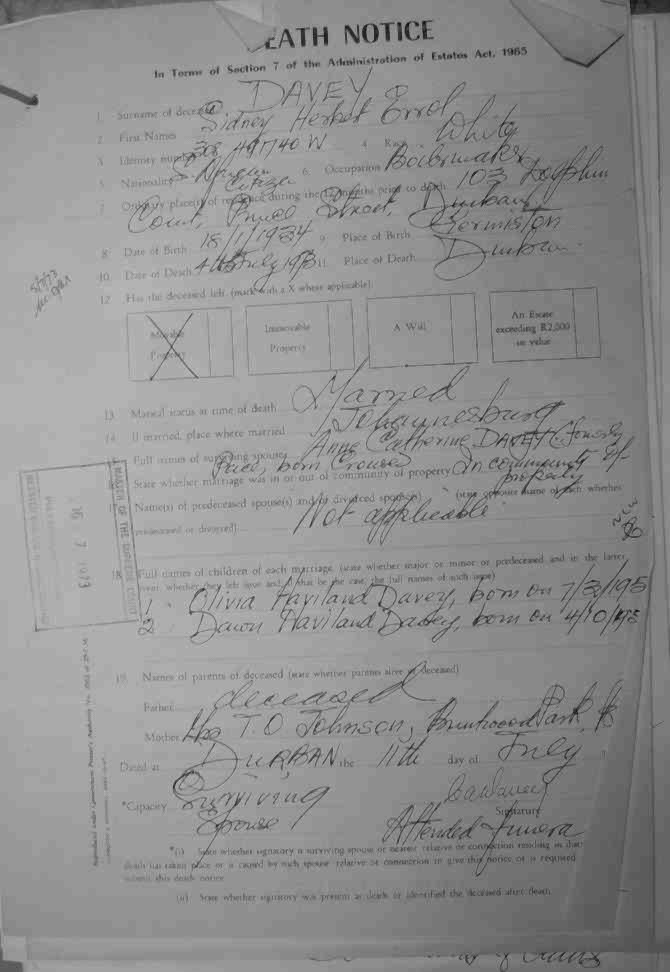 EATH NOTICE
In Terms of Section 7 of the Administration of Estates Act, 1965
1. Surname of deceased DAVEY
2. First Names Sidney Herbert Errol
3. Identity number 318 497740 W 4. Race White
5. Nationality S. African Citizen 6. Occupation Boilermaker
7. Ordinary place(s) of residence during the 12 months prior to death 103 Dolphin
Court, Prince Street, Durban
8. Date of Birth 18/1/1934 9. Place of Birth Germiston
10. Date of Death 4th July 1973 11. Place of Death Durban.
12. Has the deceased left (mark with a X where applicable)
Movable Property
Immovable Property
A Will
An Estate exceeding R2,000 in value
13. Marital status at time of death Married
14. If married, place where married Johannesburg
15. Full names of surviving spouse Anne Catherine DAVEY (formerly
born
State whether marriage was in or out of community of property In community of property
17. Name(s) of predeceased spouse(s) and/or divorced spouse(s) (state opposite name of each whether
predeceased or divorced) Not applicable
18. Full names of children of each marriage (state whether major or minor or predeceased and in the latter
event whether they left issue and, if that be the case, the full names of such issue)
1. Olivia Haviland Davey, born on 7/3/195
2. Dawn Haviland Davey, born on 4/10/195
MASTER OF THE SUPREME COURT
7 1973
19. Names of parents of deceased (state whether parents alive or deceased)
Father deceased
Mother Mrs T.O Johnson, Brentwood Park,
Dated at DURBAN the 11th day of July
*Capacity Surviving Spouse
Signature
Attended funera
*(i) State whether signatory is surviving spouse or nearest relative or connection residing in district
death has taken place or is caused by such spouse relative or connection to give this notice or is required
submit this death notice
(ii) State whether signatory was present at death or identified the deceased after death.